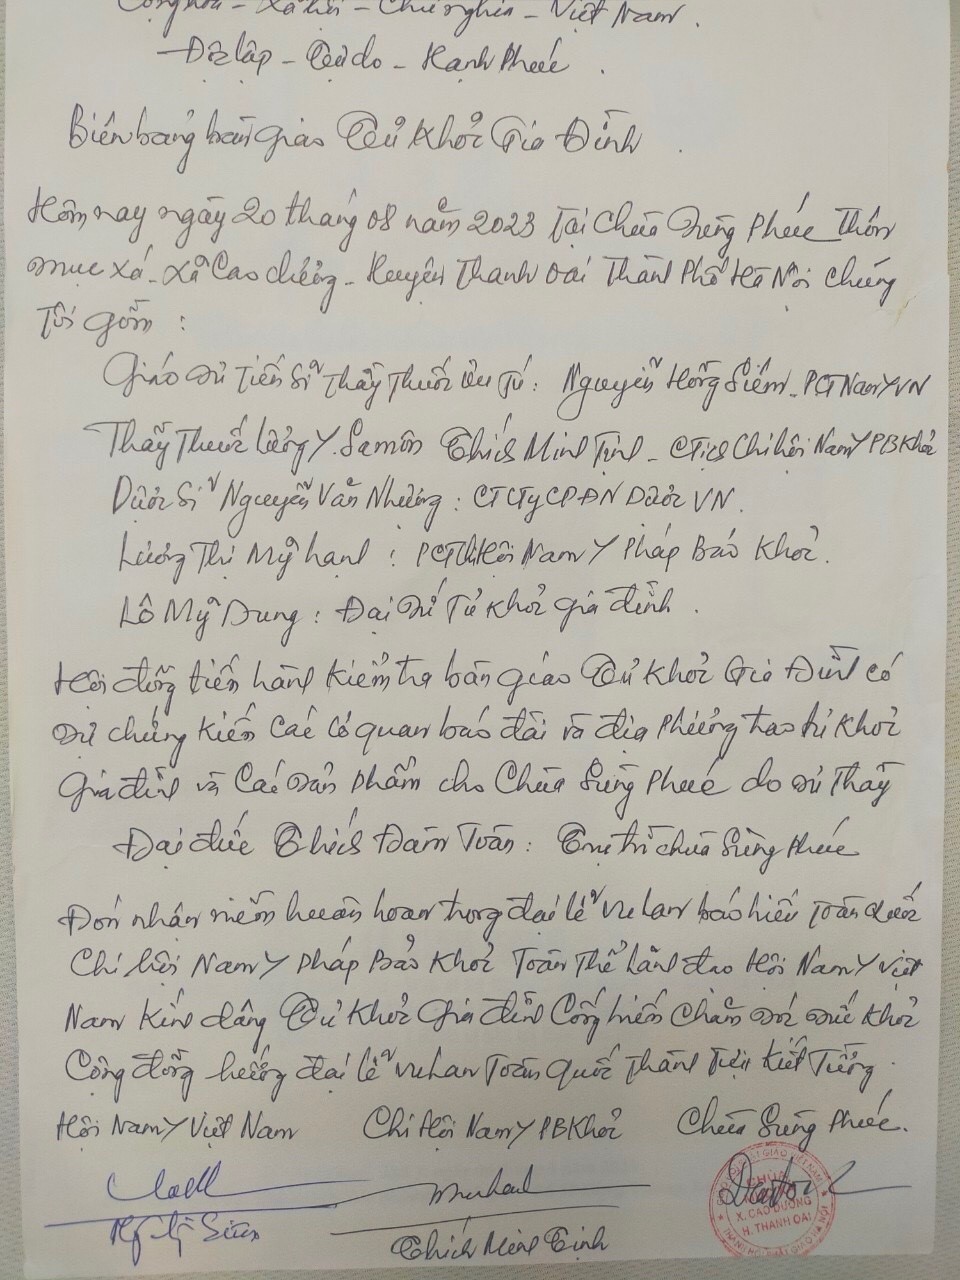 Cộng hòa - Xã hội - Chủ nghĩa - Việt Nam.
Độc lập - Tự do - Hạnh Phúc.
Biên bản bàn giao Tủ Khỏe Gia Đình.
Hôm nay ngày 20 tháng 08 năm 2023 Tại Chùa Sùng Phúc Thôn
Mục Xá - Xã Cao dương - Huyện Thanh Oai Thành Phố Hà Nội chúng
Tôi gồm:
Giáo Sư Tiến Sĩ Thầy Thuốc Ưu Tú: Nguyễn Hồng Siêm - PCT Nam Y VN
Thầy Thuốc lương Y. Samôn Thích Minh Tịnh - CTịch Chi hội Nam Y PB Khỏe
Dược Sĩ Nguyễn Văn Nhương: CT CTy CP ĐN Dược VN.
Lương Thị Mỹ hạnh: PCT Hội Nam Y Pháp Bảo Khỏe.
Lô Mỹ Dung: Đại Sứ Tủ Khỏe gia đình.
Hội đồng tiến hành kiểm tra bàn giao Tủ Khỏe Gia Đình có
sự chứng kiến các cơ quan báo đài và địa phương trao tủ Khỏe
Gia đình và các sản phẩm cho Chùa Sùng Phúc do sư Thầy
Đại đức Thích Đàm Toàn: Trụ trì chùa Sùng Phúc
Đón nhận niềm hân hoan trong đại lễ vu lan báo hiếu Toàn Quốc
Chi hội Nam Y Pháp Bảo Khỏe Toàn Thể lãnh đạo Hội Nam Y Việt
Nam Kính dâng Tủ Khỏe Gia đình Cống hiến Chăm sóc sức Khỏe
Cộng đồng hướng đại lễ vu lan Toàn Quốc Thành Tựu Kiết Tường.
Hội Nam Y Việt Nam Chi Hội Nam Y PB Khỏe Chùa Sùng Phúc.
CHÙA
X. CAO DƯƠNG
H. THANH OAI
Thích Minh Tịnh